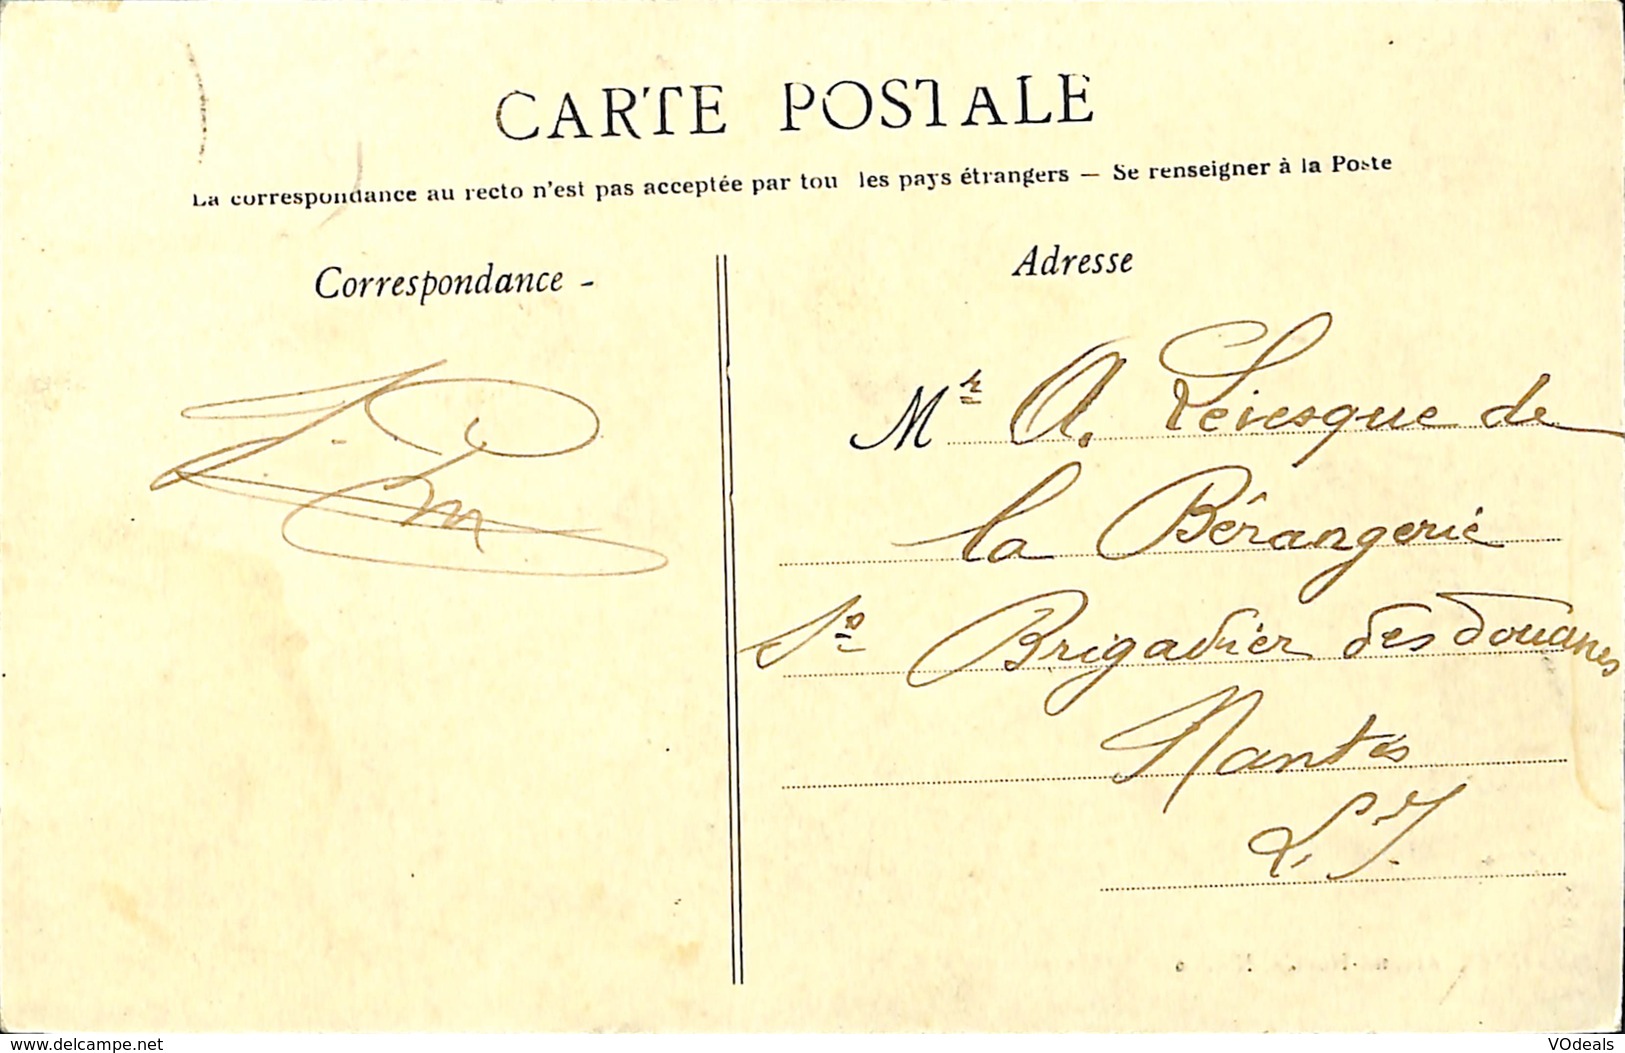 CARTE POSTALE
La correspondance au recto n'est pas acceptée par tou les pays étrangers — Se renseigner à la Poste
Correspondance -
Adresse
Mr A. Levesque de
la Bérangerie
Brigadier des Douanes
Nantes
L. I.
delcampe.net
VOdeals